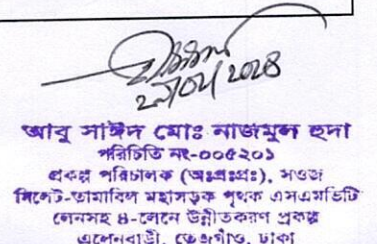 আবু সাঈদ মোঃ নাজমুল হুদা
পরিচিতি নং-০০৫২০১
প্রকল্প পরিচালক (অঃপ্রঃপ্রঃ), সওজ
সিলেট-তামাবিল মহাসড়ক পৃথক এসএমভিটি
লেনসহ ৪-লেনে উন্নীতকরণ প্রকল্প
এলেনবাড়ী, তেজগাঁও, ঢাকা